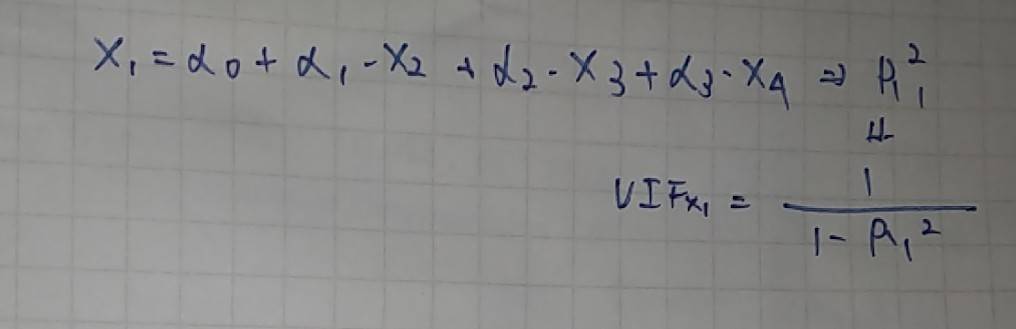 X₁ = α₀ + α₁ · X₂ + α₂ · X₃ + α₃ · X₄ ⇒ R₁²
⇓
VIFₓ₁ = 1 / (1 - R₁²)